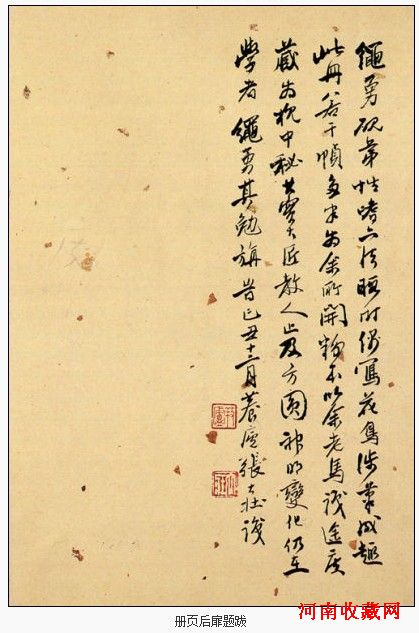 繩勇硯弟性嗜六法暇時偶寫花鳥涉筆成趣
此冊若干幀多半為余所開稿不以余老馬識途度
藏為枕中秘其實大匠教人止及方圓神明變化仍在
學者繩勇其勉旃旹己丑十二月養廬張大壯識
册页后扉题跋
河南收藏网